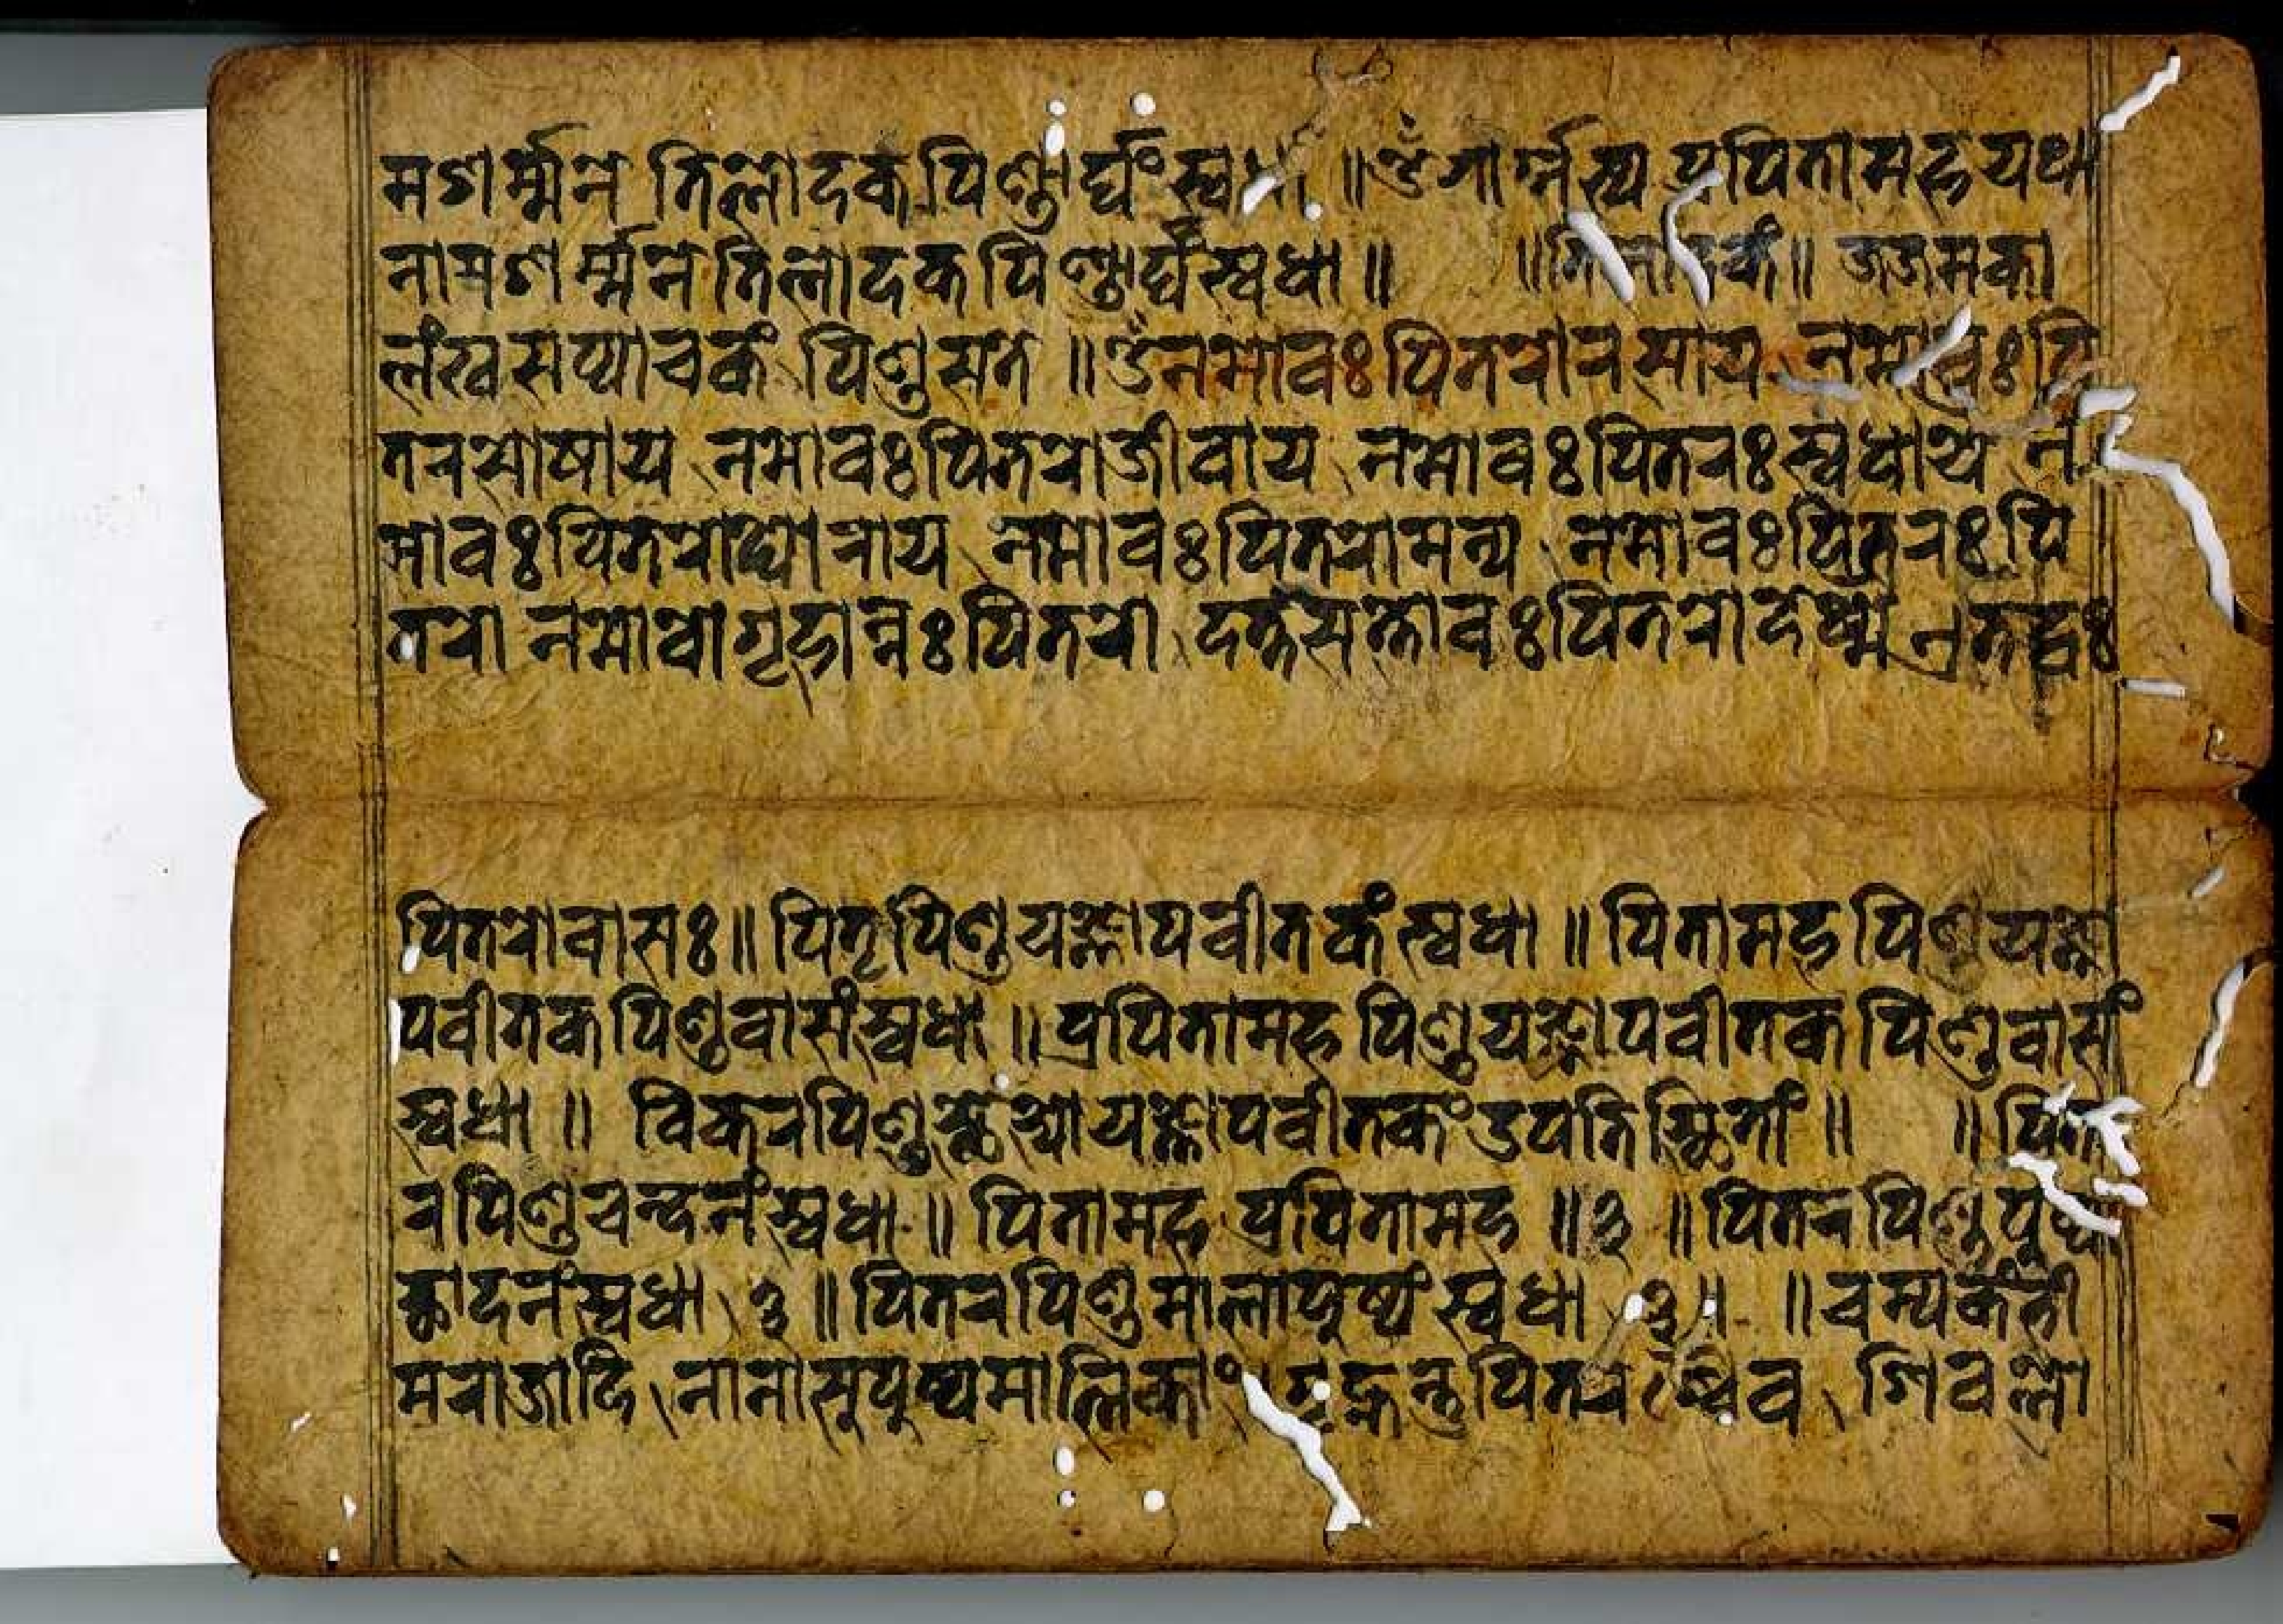 मशर्म्मन तिलोदक पिण्डार्घ्घंः स्वधा ॥ ॐ गार्ग्गस्य प्रपितामह यथा
नामशर्म्मन तिलोदक पिण्डार्घ्घं स्वधा ॥ ॥ तिलोदकं ॥ जजमका
लंखसप्वाचकं पिण्डसत ॥ ॐ नमोवः पितरोरसाय नमोवः पि
तरसोषाय नमोवः पितरोजीवाय नमोवः पितरः स्वधायै न
मोवः पितरोघोराय नमोवः पितरोमन्य नमोवः पितरः पि
तरो नमोवो गृहान्नः पितरो दत्तसत्तोवः पितरोदेष्म तद्वः
पितरोवासः ॥ पितृपिण्डयज्ञोपवीतकं स्वधा ॥ पितामह पिण्डयज्ञो
पवीतक पिण्डवासं स्वधा ॥ प्रपितामह पिण्डयज्ञोपवीतक पिण्डवासं
स्वधा ॥ विकरपिण्ड यज्ञोपवीतकं उपतिष्ठितां ॥ ॥ पित
रपिण्डचन्दनं स्वधा ॥ पितामह प्रपितामह ॥ ३ ॥ पितरपिण्डपुष्पा
च्छादनं स्वधा ३ ॥ पितरपिण्डमालापुष्पं स्वधा ३ ॥ ॥ चम्पकंती
मराजादि नानासुपुष्पमालिकां गृह्नन्तु पितरश्चैव शिवलो